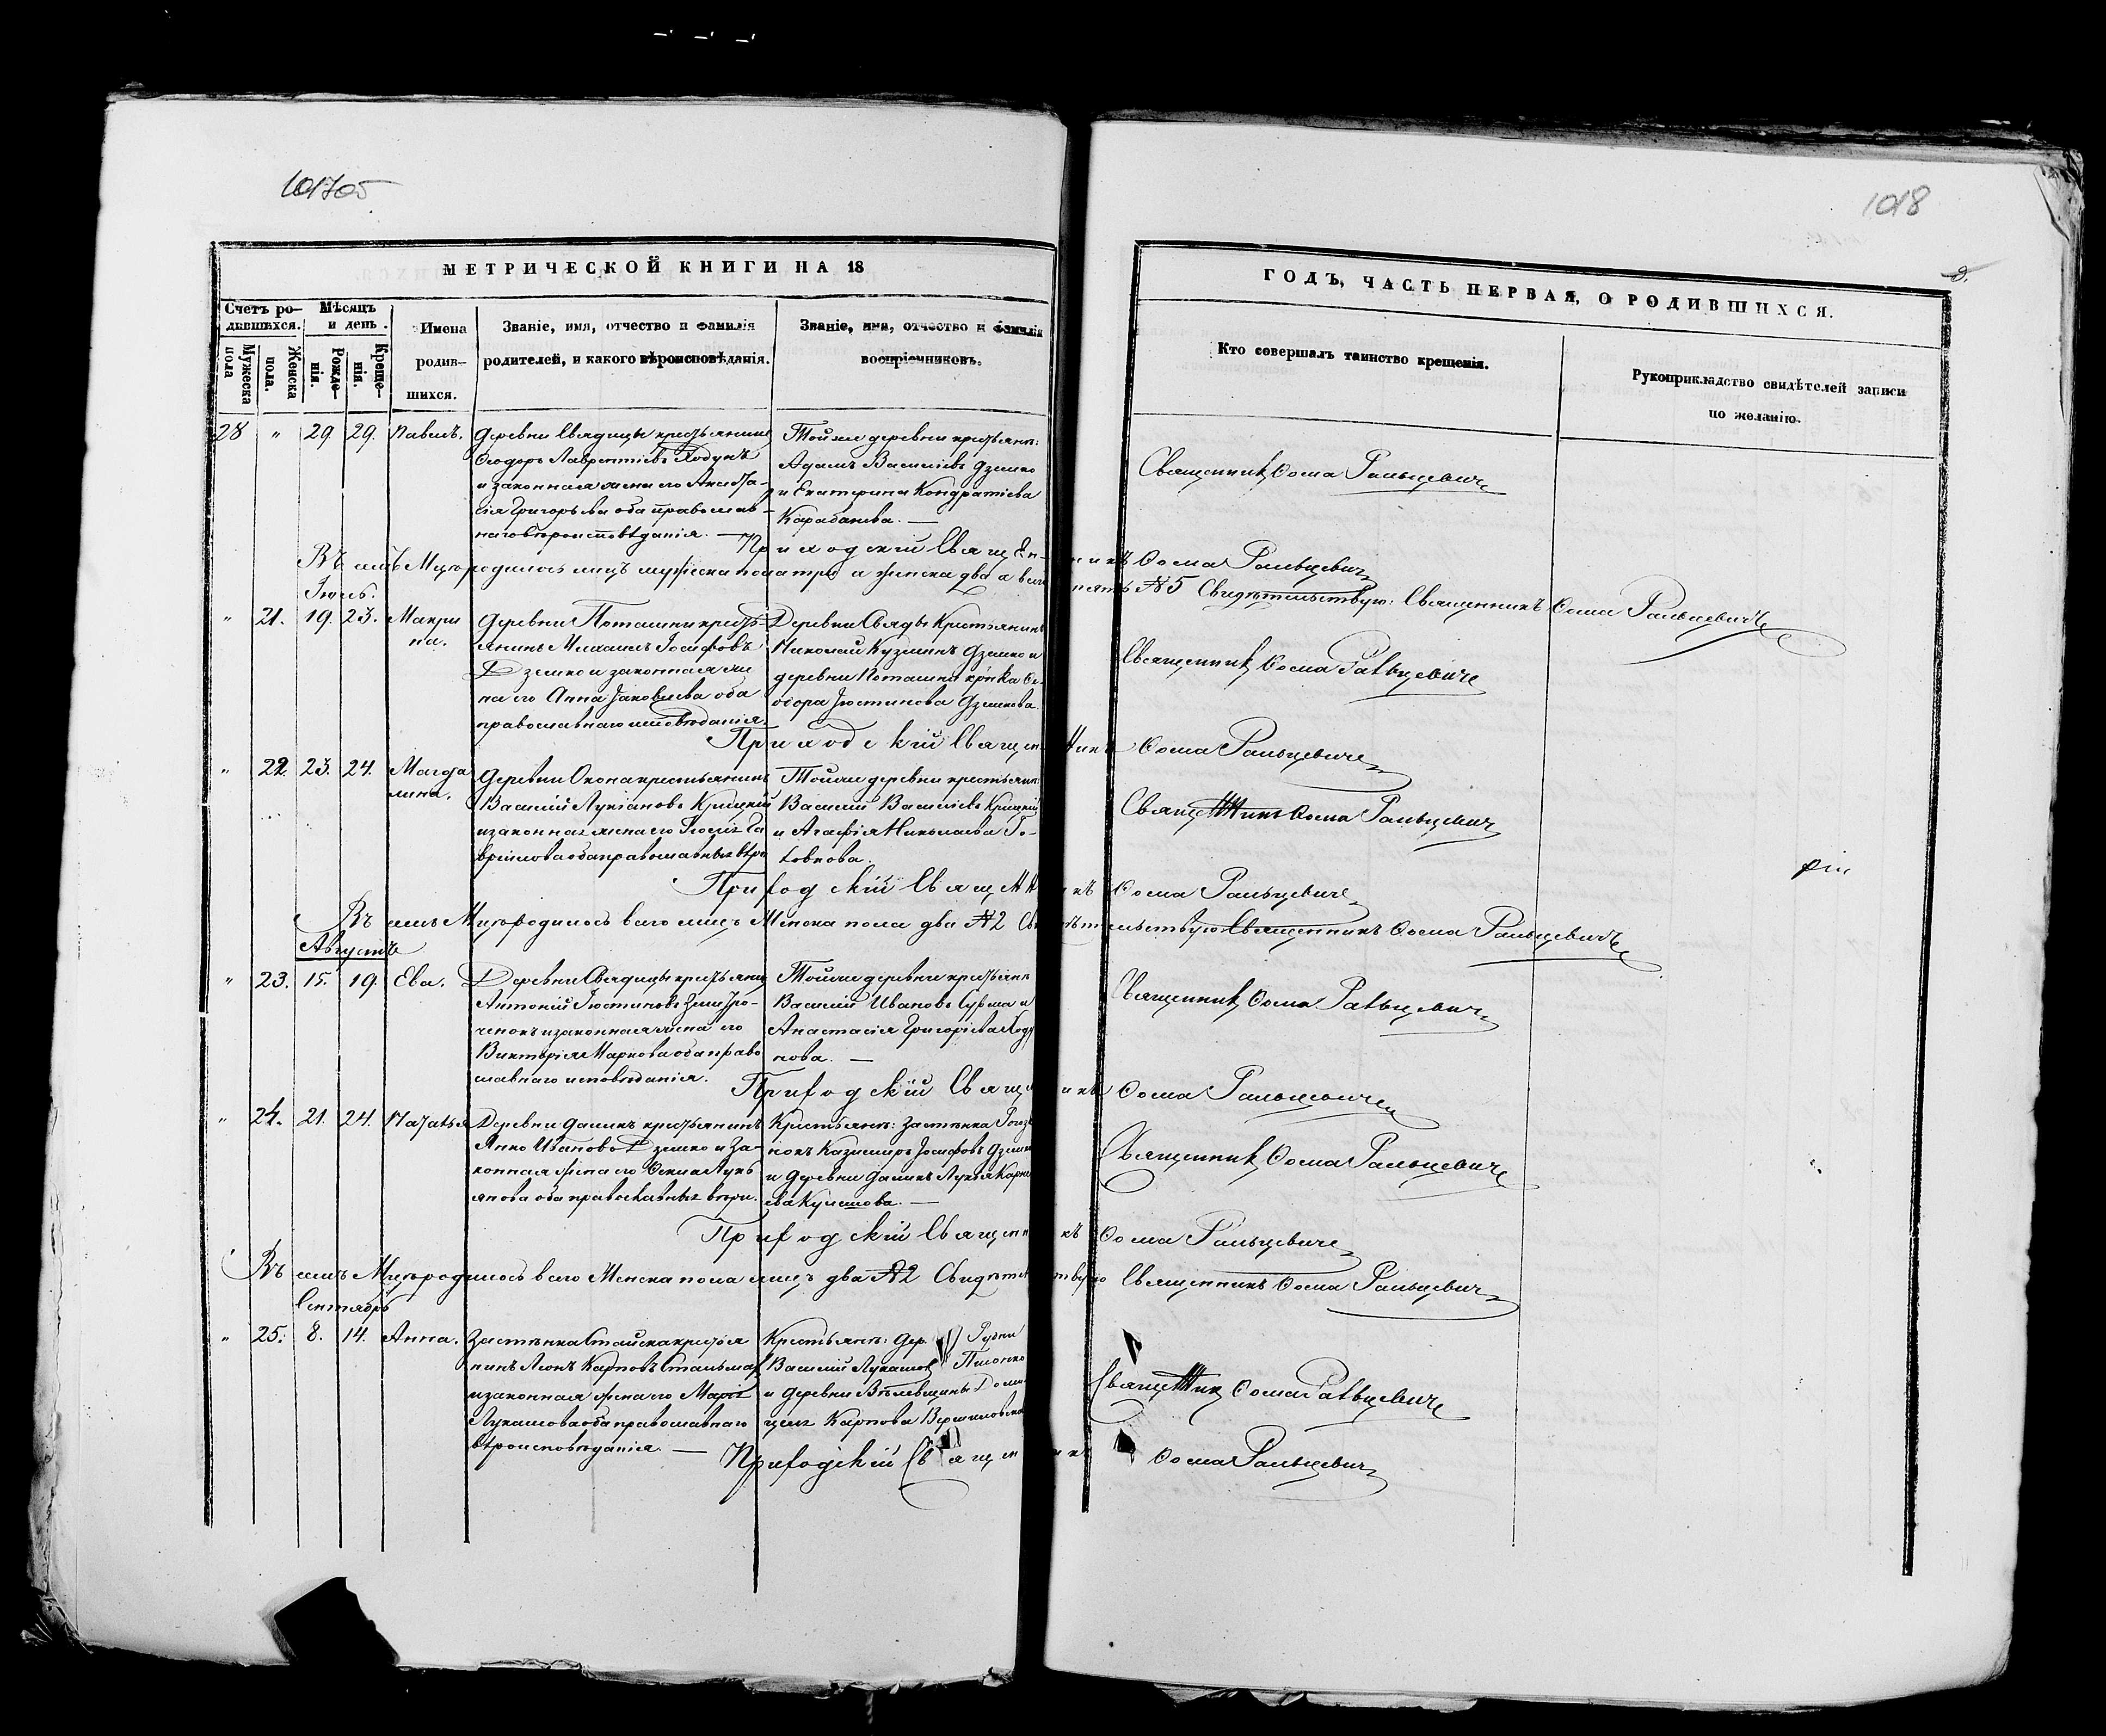 101705
1018
МЕТРИЧЕСКОЙ КНИГИ НА 18
ГОДЪ, ЧАСТЬ ПЕРВАЯ, О РОДИВШИХСЯ.
Счетъ ро-
дившихся.
Мужеска пола
Женска пола.
Мѣсяцъ
и день.
Рожде-
нія.
Креще-
нія.
Имена
родив-
шихся.
Званіе, имя, отчество и фамилія
родителей, и какого вѣроисповѣданія.
Званіе, имя, отчество и фамилія
воспріемниковъ.
Кто совершалъ таинство крещенія.
Рукоприкладство свидѣтелей записи
по желанію.
28 " 29. 29. Павелъ.
Деревни Свядицы крестьянинъ
Ѳеодоръ Лаврентіевъ Ходунъ
и законная жена его Анаста-
сія Григорьева оба православ-
наго вѣроисповѣданія. —
Тойже деревни крестьян:
Адамъ Василіевъ Дземко
и Екатерина Кондратіева
Карабанева. —
Священникъ Ѳома Ральцевичъ
Приходскій Священникъ Ѳома Ральцевичъ
Въ семъ М-цѣ родилось лицъ мужеска пола три а женска два а всего пять № 5 Свидѣтельствую: Священникъ Ѳома Ральцевичъ
Іюль.
" 21. 19. 23. Макри
на.
Деревни Поташни кресть-
янинъ Михаилъ Іосифовъ
Дземко и законная же
на его Анна Іаковлева оба
православнаго исповѣданія.
Деревни Свяды Крестьянинъ
Николай Кузминъ Дземко и
деревни Поташни кр-нка Ѳе-
одора Іюстинова Дземкова.
Священникъ Ѳома Ральцевичъ
Приходскій Священникъ Ѳома Ральцевичъ
" 22. 23. 24. Магда
лина.
Деревни Окона крестьянинъ
Василій Лукіановъ Крицкій
и законная жена его Га
вріилова оба православныхъ вѣро
Тойже деревни крестьян:
Василій Василіевъ Крицкій
и Агафія Николаева Го-
ловнова.
Священникъ Ѳома Ральцевичъ
Приходскій Священникъ Ѳома Ральцевичъ
Въ семъ М-цѣ родилось всего лицъ Женска пола два № 2 Свидѣтельствую Священникъ Ѳома Ральцевичъ
Августъ
" 23. 15. 19. Ева.
Деревни Свядицы крестьянинъ
Антоній Іюстиновъ
ченокъ и законная жена его
Викторія Маркова оба право
славнаго исповѣданія.
Тойже деревни крестьян
Василій Ивановъ Сурма и
Анастасія Григоріева Ходу
нова. —
Священникъ Ѳома Ральцевичъ
Приходскій Священникъ Ѳома Ральцевичъ
" 24. 21. 24. Наталья
Деревни Даликъ крестьянинъ
Янко Ивановъ Дземко и за-
конная жена его Ѳекла Лукь
янова оба православныхъ вѣри.
Крестьян: Застѣнка
нокъ Казимиръ Іосифовъ Дземко
и деревни Даликъ Лукья Карне
ева Кулешова. —
Священникъ Ѳома Ральцевичъ
Приходскій Священникъ Ѳома Ральцевичъ
Въ семъ М-цѣ родилось всего Женска пола лицъ два № 2 Свидѣтельствую Священникъ Ѳома Ральцевичъ
Сентябрь
" 25. 8. 14. Анна.
Застѣнка Стайска крестья
нинъ Леонъ Карповъ Стальмах
и законная жена его Марія
Лукашова оба православнаго
вѣроисповѣданія. —
Крестьян: дер. Рудни
Василій Лукашов
и деревни Вѣлевщины Доми
целя Карпова
Священникъ Ѳома Ральцевичъ
Приходскій Священникъ Ѳома Ральцевичъ